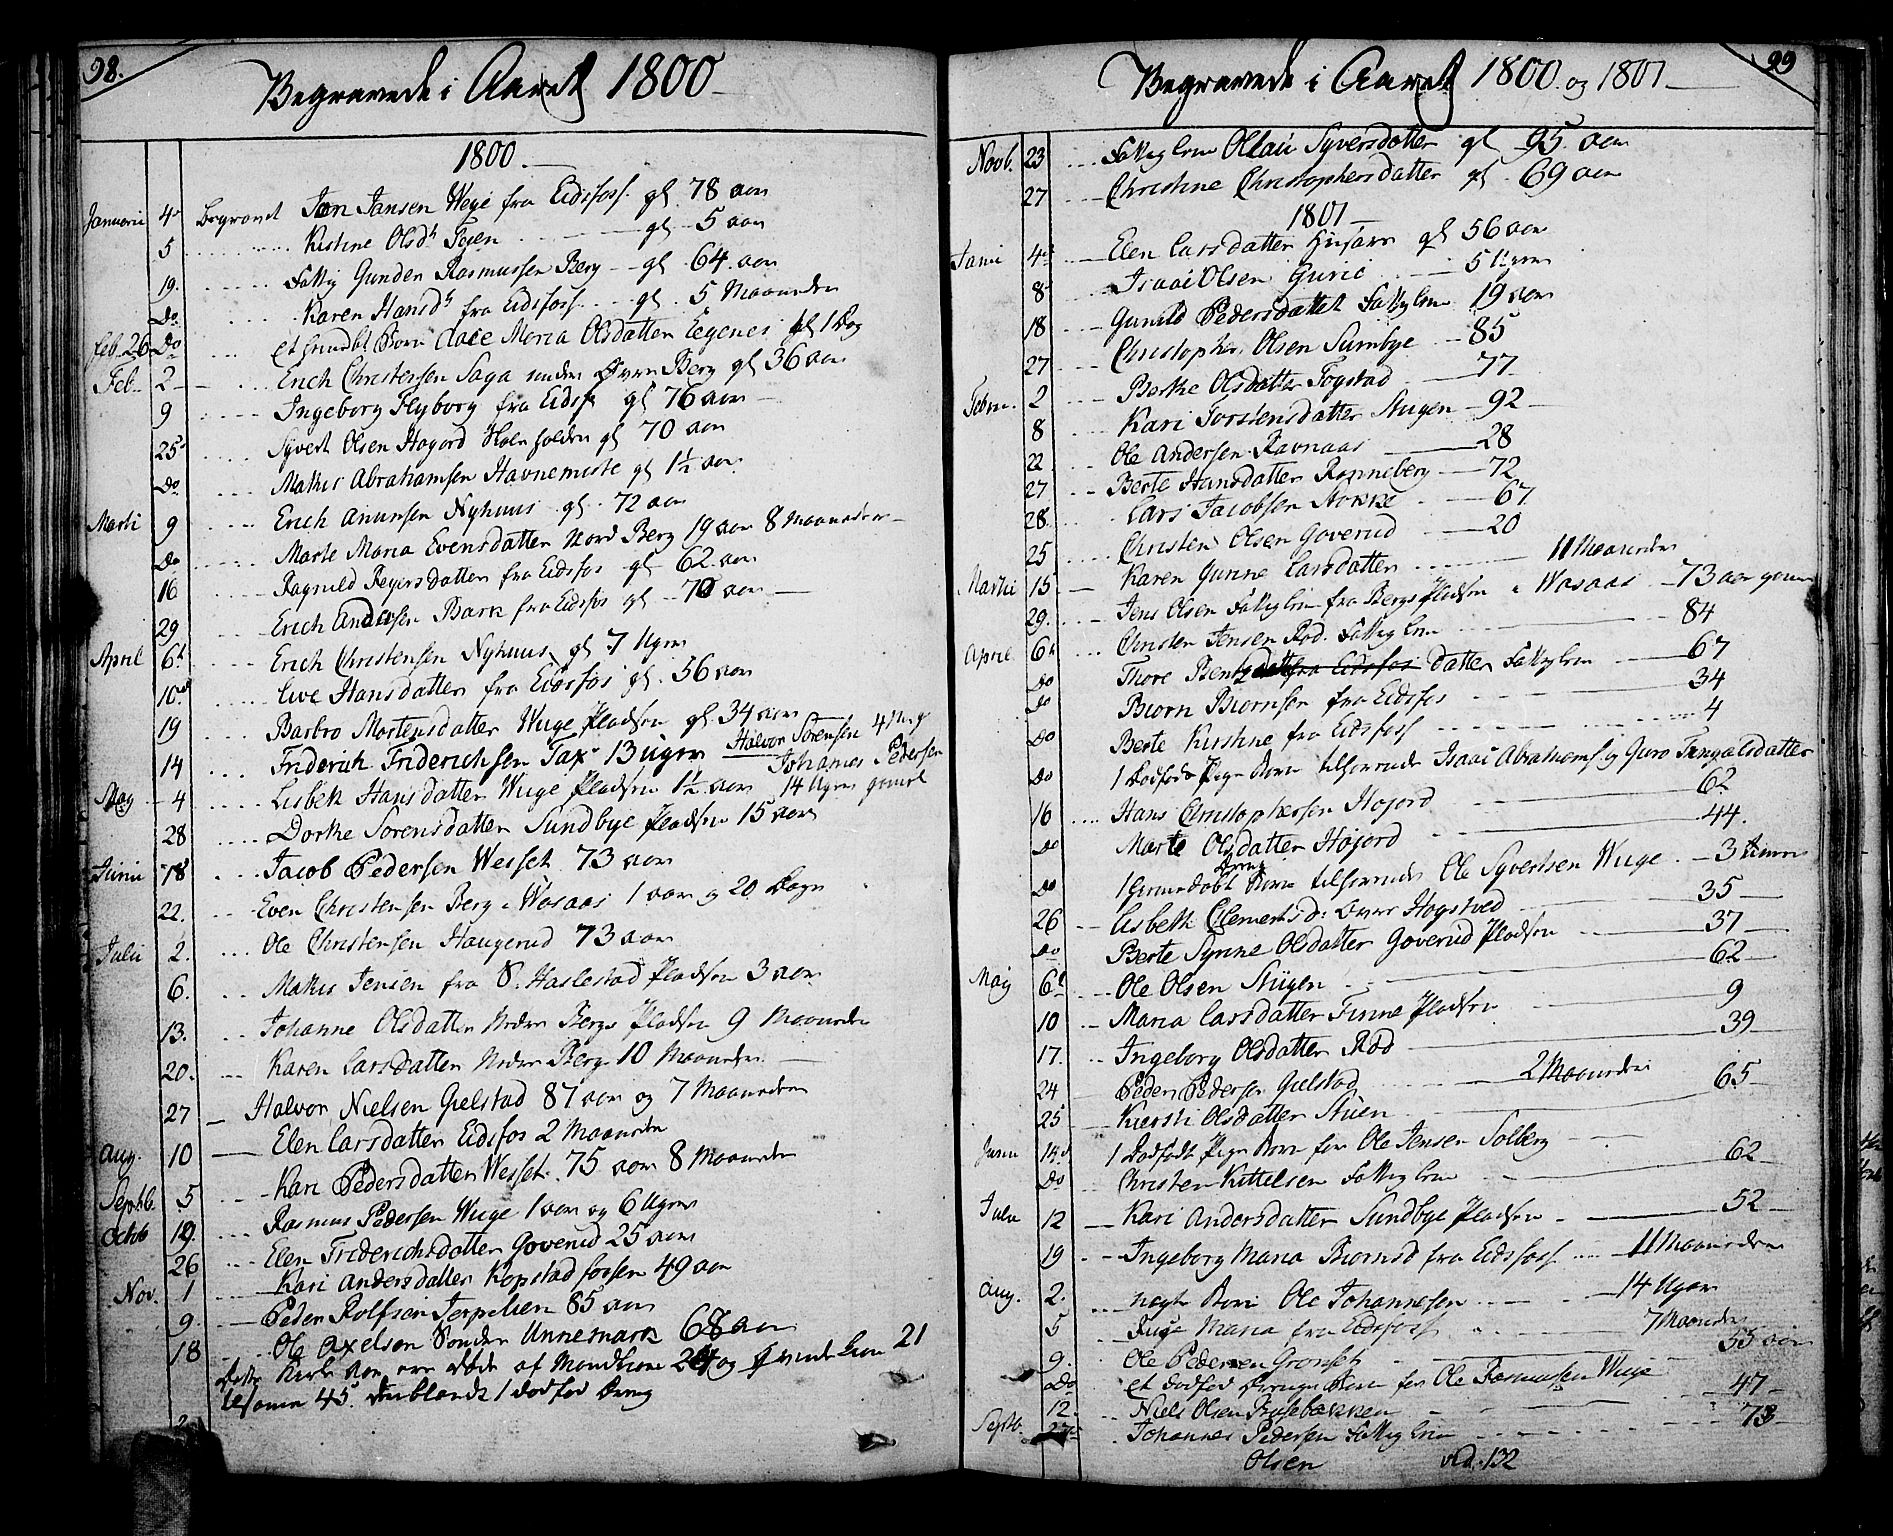 98.
Begravede i Aaret 1800
1800.
Januarii 4de begravet Jan Jansen Wege fra Eidsfoss. gl. 78 aar
5 Kistine Olsdr gl 5 aar
19. Fattig Gunder Rasmussen Berg gl 64. aar
Do Karen Hansdr fra Eidsfoss gl. 5 Maaneder
Feb. 26 Do et Barn Maria Olsdatter Eegenes gl 1 Dag
Feb. 2 Erich Christensen Saga under Øvre Berg gl 36 aar
9 Ingeborg Flyborg fra Eidsf gl 76 aar
25 Syvert Olsen Hogord gl 70 aar
Do Mathis Abrahamsen Havnemoste gl 1½ aar
Marti 9 Erich Nyhuus gl. 72 aar
Do Marte Maria Evensdatter Nord Berg 19 aar 8 Maaneder
16 Ragnild Reyersdatter fra Eidsfos gl 62 aar
29 Erich Andersen Bark fra Eidsfos gl 70 aar
April 6t Erich Christensen Nyhuus gl 7 Ugers
10de Live Hansdatter fra Eidsfos gl. 56 aar
19 Barbro Mortensdatter Wuge Pladsen gl. 34 aar
14 Friderich Friderichsen Tax 13 uger Halvor Sørensen 4 Uger
May 4 Lisbeth Hansdatter Wuge Pladsen 1½ aar Johannes Pedersen 14 Uger gamel
28 Dorthe Sørensdatter Sundbye Pladsen 15 aar
Junii 18 Jacob Pedersen Wesset 73 aar
22. Even Christensen Berg i Wosaas 1 aar og 20 Dage
Julii 2. Ole Christensen Haugerud 73 aar
6. Mathis Jensen fra S. Haslestad Pladsen 3 aar
13. Johanne Olsdatter Nedre Bergs Pladsen 9 Maaneder
20. Karen Larsdatter Nedre Berg 10 Maaneder
27 Halvor Nielsen Gielstad 87 aar og 7 Maaneder
Aug. 10 Elen Larsdatter Eidsfos 2 Maaneder
Septb. 5 Kari Pedersdatter Wesset. 75 aar 8 Maaneder
Octob 19 Rasmus Pedersen Wuge 1 aar og 6 Ugers
26 Elen Friderichsdatter Goverud 25 aar
Nov. 1 Kari Andersdatter Kopstad 49 aar
9 Peder Rolfsen 85 aar
18 Ole Axelsen Sønder Unnemark 68 aar
Dette Kirke Aar ere døde af Mandkiøn 24 og Qvindekiøn 21
tilsamen 45. deriblandt 1 dødfød Dreng
99
Begravede i Aaret 1800. og 1801
Novb. 23 Fattiglem Syversdatter gl 95. aar
27 Christine Christophersdatter gl. 69 aar
1801
Janii 4de Elen Larsdatter gl 56 aar
8 Isaac Olsen 5 Ugers
18 Gunild Pedersdatter Fattiglem 19 aar
27 Christopher Olsen Sumbye 85
Febru. 2 Berthe Olsdatter Fogstad 77
8 Kari Torstensdatter Stugen 92
22 Ole Andersen Ravnaas 28
27 Berte Hansdatter Rønneberg 72
28 Lars Jacobsen Stokke 67
25 Christen Olsen Goverud 20
Martii 15 Karen Gurine Larsdatter 11 Maaneder
29. Jens Olsen Fattiglem fra Bergs Pladsen i Wosaas 73 aar gamel
April 6t Christen Jensen Rød. Fattiglem 84
Do Thore datter Fattiglem 67
Do Biørn Biørnsen fra Eidsfos 34
Do Berte Kirstine fra Eidsfoss 4
Do 1 Dødfødt Pige Barn tilhørende Isaac Abrahams. og Guro
16 Hans Christophersen Højord 62
Do Marte Olsdatter Højord 44.
Do 1 Dreng Barn tilhørende Ole Syvertsen Wuge 3 timer
26 Lisbeth Clementsd: Øvre Hogstved 35
Do Berte Synne Olsdatter Goverud Pladsen 37
May 6t Ole Olsen Stugen 62
10 Maria Larsdatter Finne Pladsen 9
17. Ingeborg Olsdatter Rød 39
24 Peder Pedersen Gielstad 2 Maaneder
25 Kiersti Olsdatter Stuen 65
Junii 14d 1 Dødfødt Pige Barn for Ole Jensen Solberg
Do Christen Kittelsen Fattiglem 62
Julii 12 Kari Andersdatter Sundbye Pladsen 52
19 Ingeborg Maria Biørnsd fra Eidsfoss 11 Maaneder
Aug. 2. Barn Ole Johannesen 14 Uger
5 Maria fra Eidsfoss 7 Maaneder
9. Ole Pedersen Grønset 55 aar
Do et dødfød Drenge Barn for Ole Wuge
12. Niels Olsen 47
Septb. 27 Johannes Pedersen Fattiglem 73
Olsen vid. 132